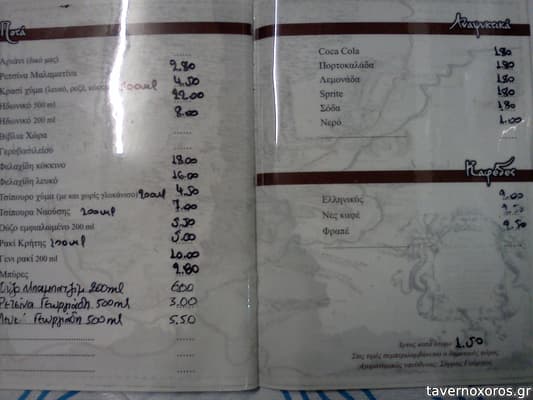 Ποτά
Αριάνι (δικό μας) 2.80
Ρετσίνα Μαλαματίνα 4.50
Κρασί χύμα (λευκό, ροζέ, κόκκινο) 500ml
Ηδωνικό 500 ml
Ηδωνικό 200 ml
Βιβλία Χώρα
Γεροβασιλείου
Φιλαχίδη κόκκινο 18.00
Φιλαχίδη λευκό 16.00
Τσίπουρο χύμα (με και χωρίς γλυκάνισο) 200ml 4.50
Τσίπουρα Ναούσης 200ml 7.00
Ούζο εμφιαλωμένο 200 ml 5.50
Ρακί Κρήτης 200ml 5.00
Γενι ρακί 200 ml 10.00
Μπύρες 2.80
Ούζο Μπαμπατζίμ 200ml 6.00
Ρετσίνα Γεωργιάδη 500ml 3.00
Γεωργιάδη 500ml 5.50
Αναψυκτικά
Coca Cola 1.80
Πορτοκαλάδα 1.80
Λεμονάδα 1.80
Sprite 1.80
Σόδα 1.80
Νερό 1.00
Καφέδες
Ελληνικός 2.00
Νες καφέ 2.50
Φραπέ 2.50
Άρτος κατ' άτομο 1.50
Στις τιμές συμπεριλαμβάνεται ο δημοτικός φόρος
Αγορανομικός υπεύθυνος:
tavernoxoros.gr